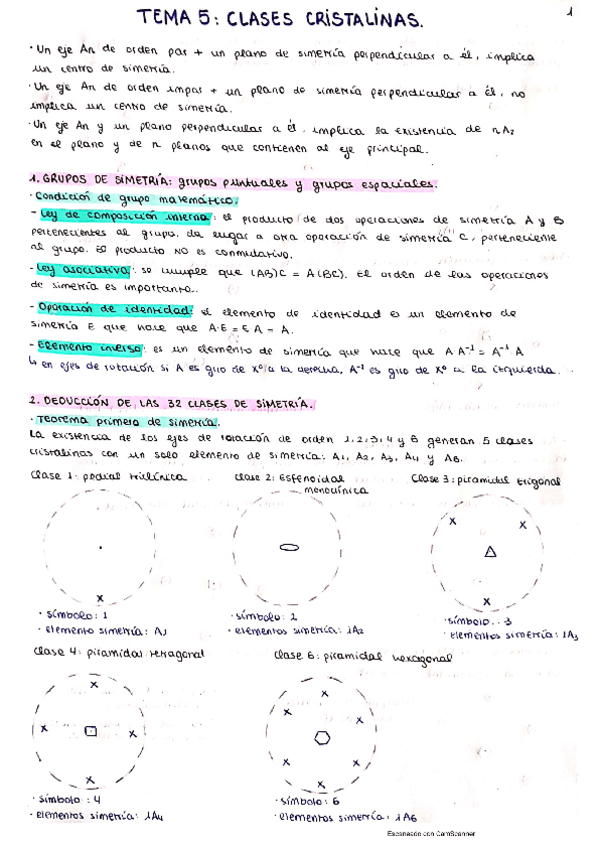 TEMA 5: CLASES CRISTALINAS.
1
· Un eje An de orden par + un plano de simetría perpendicular a él, implica
un centro de simetría.
· Un eje An de orden impar + un plano de simetría perpendicular a él, no
implica un centro de simetría.
· Un eje An y un plano perpendicular a él, implica la existencia de nA2
en el plano y de n planos que contienen al eje principal.
1. GRUPOS DE SIMETRÍA: grupos puntuales y grupos espaciales.
· Condición de grupo matemático.
- Ley de composición interna: el producto de dos operaciones de simetría A y B
pertenecientes al grupo, da lugar a otra operación de simetría C, perteneciente
al grupo. El producto NO es conmutativo.
- Ley asociativa: se cumple que (AB)C = A(BC). El orden de las operaciones
de simetría es importante.
- Operación de identidad: el elemento de identidad es un elemento de
simetría E que hace que A·E = E A = A.
- Elemento inverso: es un elemento de simetría que hace que A A⁻¹ = A⁻¹ A
↳ en ejes de rotación si A es giro de Xº a la derecha, A⁻¹ es giro de Xº a la izquierda.
2. DEDUCCIÓN DE LAS 32 CLASES DE SIMETRÍA.
· Teorema primero de simetría.
La existencia de los ejes de rotación de orden 1, 2, 3, 4 y 6 generan 5 clases
cristalinas con un solo elemento de simetría: A1, A2, A3, A4 y A6.
Clase 1: pedial triclínica
Clase 2: Esfenoidal
monoclínica
Clase 3: piramidal trigonal
x
x x
x
· símbolo: 1
· elemento simetría: A1
· símbolo: 2
· elementos simetría: 1A2
· símbolo: 3
· elementos simetría: 1A3
Clase 4: piramidal tetragonal
Clase 6: piramidal hexagonal
x
x x
x
x
x x
x x
x
· símbolo: 4
· elementos simetría: 1A4
· símbolo: 6
· elementos simetría: 1A6
Escaneado con CamScanner